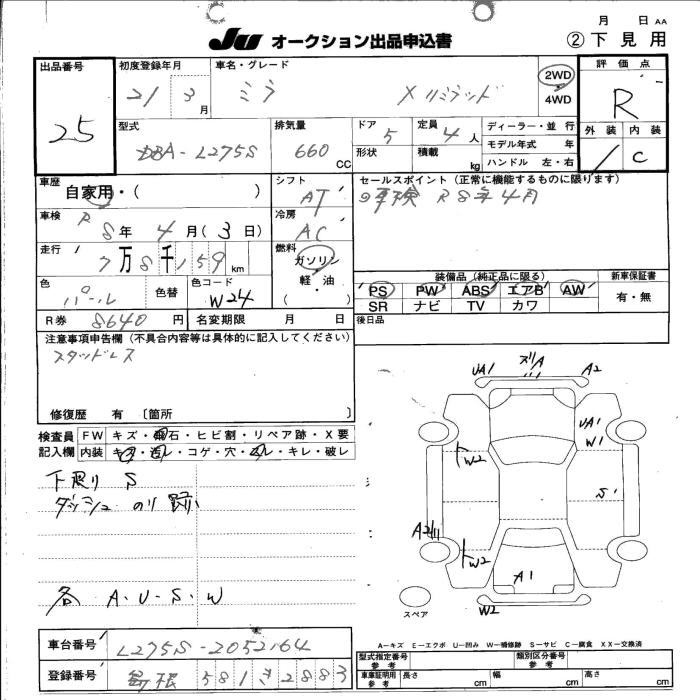 月 日 AA
JU オークション出品申込書 ②下見用
出品番号 25
初度登録年月 21 3月
車名・グレード ミラ X リミテッド
2WD
4WD
評価点 R
外装 内装 C
型式 DBA-L275S
排気量 660 CC
ドア 5
形状
定員 4人
積載 kg
ディーラー・並行
モデル年式 年
ハンドル 左・右
車歴 自家用・( )
車検 R 8年 4月(3日)
走行 7万8千159 km
色 パール 色替 色コード W24
R券 8640円 名変期限 月 日
シフト AT
冷房 AC
燃料 ガソリン
軽・油
( )
セールスポイント(正常に機能するものに限ります)
車検 R8年4月
装備品(純正品に限る) 新車保証書
PS PW ABS エアB AW
SR ナビ TV カワ
有・無
後日品
注意事項申告欄(不具合内容等は具体的に記入してください)
スタッドレス
修復歴 有 〔箇所 〕
検査員 FW キズ・飛石・ヒビ割・リペア跡・X要
記入欄 内装 キズ・汚レ・コゲ・穴・スレ・キレ・破レ
下廻り S
ダッシュ のり跡
各 A・U・S・W
UA1 ズリA A2
UA1
W1
W2
S1
A2
W2
A1
W2
スペア
A―キズ E―エクボ U―凹み W―補修跡 S―サビ C―腐食 XX―交換済
車台番号 L275S-2052164
登録番号 581 さ 2883
型式指定番号 参考
類別区分番号 参考
車庫証明用 参考 長さ cm 幅 cm 高さ cm